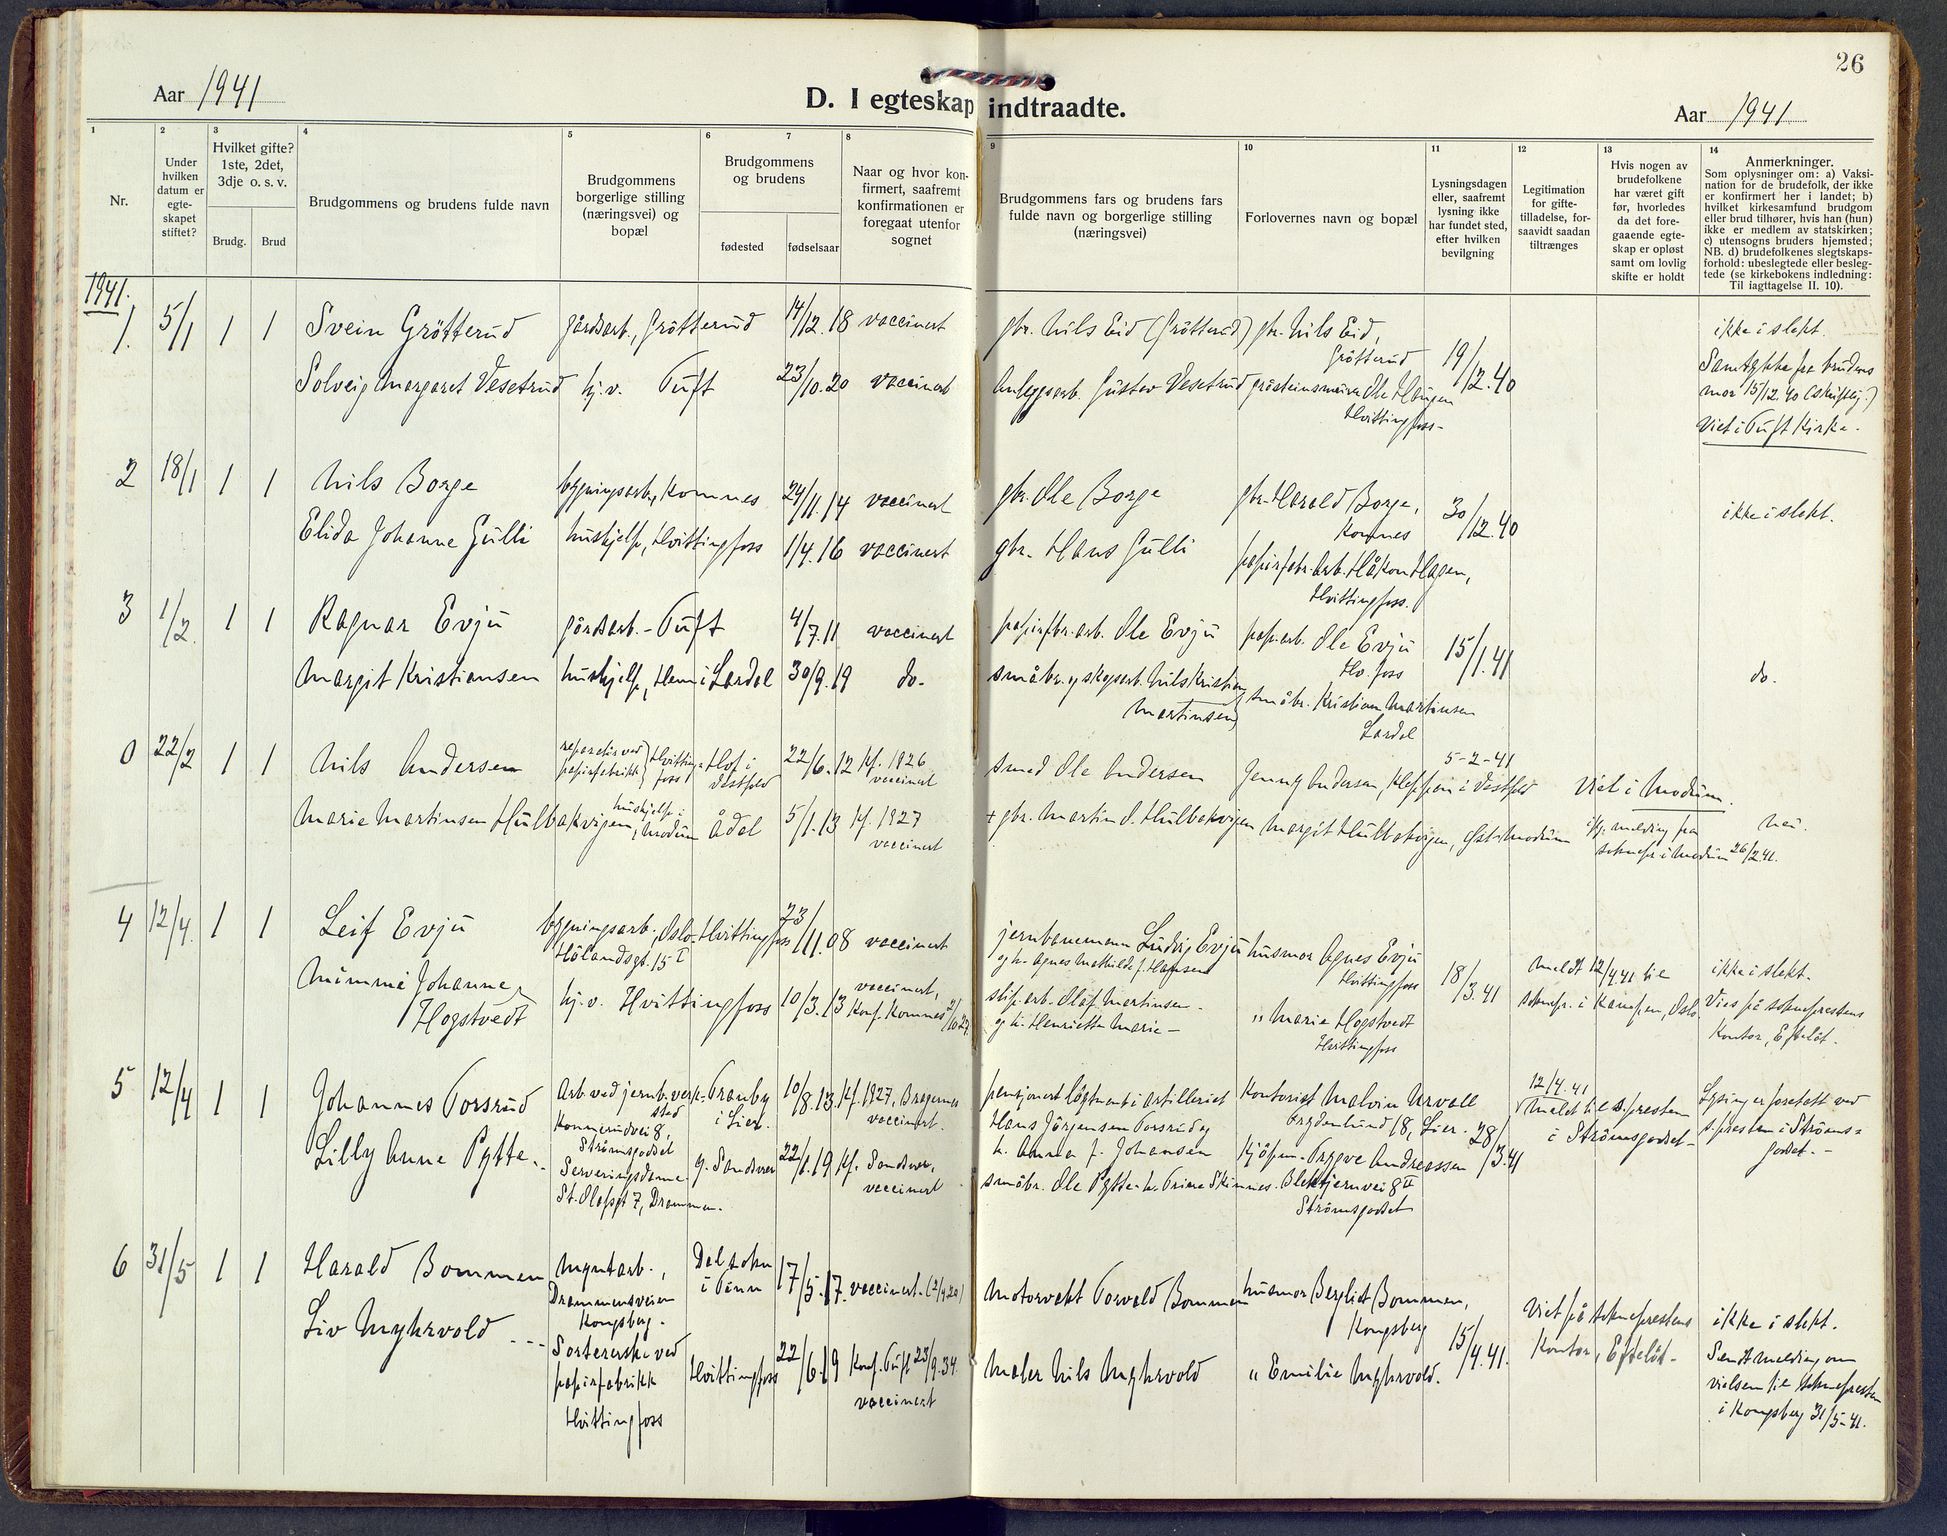 26
Aar 1941
D. I egteskap indtraadte.
Aar 1941
1
Nr.
2
Under
hvilken
datum er
egte-
skapet
stiftet?
3
Hvilket gifte?
1ste, 2det,
3dje o. s. v.
Brudg.
Brud
4
Brudgommens og brudens fulde navn
5
Brudgommens
borgerlige stilling
(næringsvei) og
bopæl
6
7
Brudgommens
og brudens
fødested
fødselsaar
8
Naar og hvor kon-
firmert, saafremt
konfirmationen er
foregaat utenfor
sognet
9
Brudgommens fars og brudens fars
fulde navn og borgerlige stilling
(næringsvei)
10
Forlovernes navn og bopæl
11
Lysningsdagen
eller, saafremt
lysning ikke
har fundet sted,
efter hvilken
bevilgning
12
Legitimation
for gifte-
tilladelse, for-
saavidt saadan
tiltrænges
13
Hvis nogen av
brudefolkene
har været gift
før, hvorledes
da det fore-
gaaende egte-
skap er opløst
samt om lovlig
skifte er holdt
14
Anmerkninger.
Som oplysninger om: a) Vaksi-
nation for de brudefolk, der ikke
er konfirmert her i landet; b)
hvilket kirkesamfund brudgom
eller brud tilhører, hvis han (hun)
ikke er medlem av statskirken;
c) utensogns bruders hjemsted;
NB. d) brudefolkenes slegtskaps-
forhold: ubeslegtede eller besleg-
tede (se kirkebokens indledning:
Til iagttagelse II. 10).
1941.
1. 5/1 1 1 Svein Grötterud gårdsarb., Grötterud 14/12.18 vaccinert gbr. Nils Eid (Grötterud) gbr. Nils Eid,
Grötterud
19/12.40
ikke i slekt.
Solveig Margaret Vesetrud hj.v. Tuft 23/10.20 vaccinert Anleggsarb. Gustav Vesetrud gråsteinsmurer Ole Haugen
Hvittingfoss-
Samtykke fra brudens
mor 15/12.40 (skriftlig.)
Viet i Tuft Kirke.
2 18/1 1 1 Nils Borge bygningsarb., Komnes 24/11.14 vaccinert gbr. Ole Borge gbr. Harald Borge,
Komnes
30/12.40
ikke i slekt.
Elida Johanne Gulli hushjelp, Hvittingfoss 1/4.16 vaccinert gbr. Hans Gulli papirfabr.arb. Håkon Hagen,
Hvittingfoss.
3 1/2. 1 1 Ragnar Evju gårdsarb. - Tuft 4/7.11 vaccinert papirfbr.arb. Ole Evju pap.arb. Ole Evju
Hv.foss
15/1.41
Margit Kristiansen hushjelp, Hem i Lardal 30/9.19 do. småbr. og skogsarb. Nils Kristian
Martinsen
småbr. Kristian Martinsen
Lardal
do.
0 22/2 1 1 Nils Andersen reparatør ved
papirfabrikk
Hvitting-
foss
Hof i
Vestfold
22/6.12 Kf. 1926
vaccinert
smed Ole Andersen Jenny Andersen, Kleppen i Vestfold
5-2-41
Viet i Modum.
Marie Martinsen Hulbakvigen, hushjelp i
Modum Ådal 5/1.13 Kf. 1927
vaccinert
+ gbr. Martin O. Hulbakvigen Margit Hulbakvigen, Øst-Modum
iflg. melding fra
soknepr. i Modum 26/2.41.
nei.
4 12/4. 1 1 Leif Evju bygningsarb., Oslo
Hølandsgt. 15 I
Hvittingfoss 23/11.08 vaccinert jernbanemann Ludvig Evju
og h. Agnes Mathilde f. Hansen
husmor Agnes Evju
Hvittingfoss
18/3.41
Meldt 12/4.41 til
soknepr. i Kampen, Oslo
ikke i slekt.
Vies på sokneprestens
kontor, Efteløt.
Mimmi Johanne
Hogstvedt
hj.v. Hvittingfoss 10/3.13 vaccinert,
Konf. Komnes 2/10.27
slip.arb. Olaf Martinsen
og h. Henriette Marie -
" Marie Hogstvedt
Hvittingfoss
5 12/4 1 1 Johannes Torsrud Arb. ved jernb.verk-
sted
Konnerudvei 8,
Strømsgodset
Tranby
i Lier.
10/8.13. Kf. 1927, Bragernes
vaccinert.
pensjonert løytnant i artilleriet
Hans Jörgensen Torsrud og
h. Anna f. Johansen
Kontorist Malvin Urvall
18, Lier.
28/3.41
12/4.41
Meldt til s.presten
i Strömsgodset-
Lysing er foretatt ved
s.presten i Ströms=
godset. -
Lilly Anne Pytte. Serveringsdame
St. Olafsgt 7, Drammen.
g. Sandsver 22/1.19 Kf. Sandsver,
vaccinert
småbr. Ole Pytte - h. Trine Skinnes.
Kjöpm. Trygve Andreassen
Blektjernvei 8 II
Strömsgodset
6 31/5 1 1 Harald Bommen Myntarb.,
Drammensveien
Kongsberg.
Dal sokn
i Tinn
17/5.17. vaccinert. (2/9.20) Motorvakt Torvald Bommen husmor Bergliot Bommen,
Kongsberg
15/4.41.
Viet på sokneprestens
Kontor, Efteløt-
ikke i slekt.
Sendt melding om
vielsen til sokneprest
i Kongsberg 31/5-41.
Liv Myhrvold - - - Sortererske ved
papirfabrikk
Hvittingfoss
Hvittingfoss 22/6.19 Konf. Tuft 23/9.34.
vaccinert
Maler Nils Myhrvold " Emilie Myhrvold.